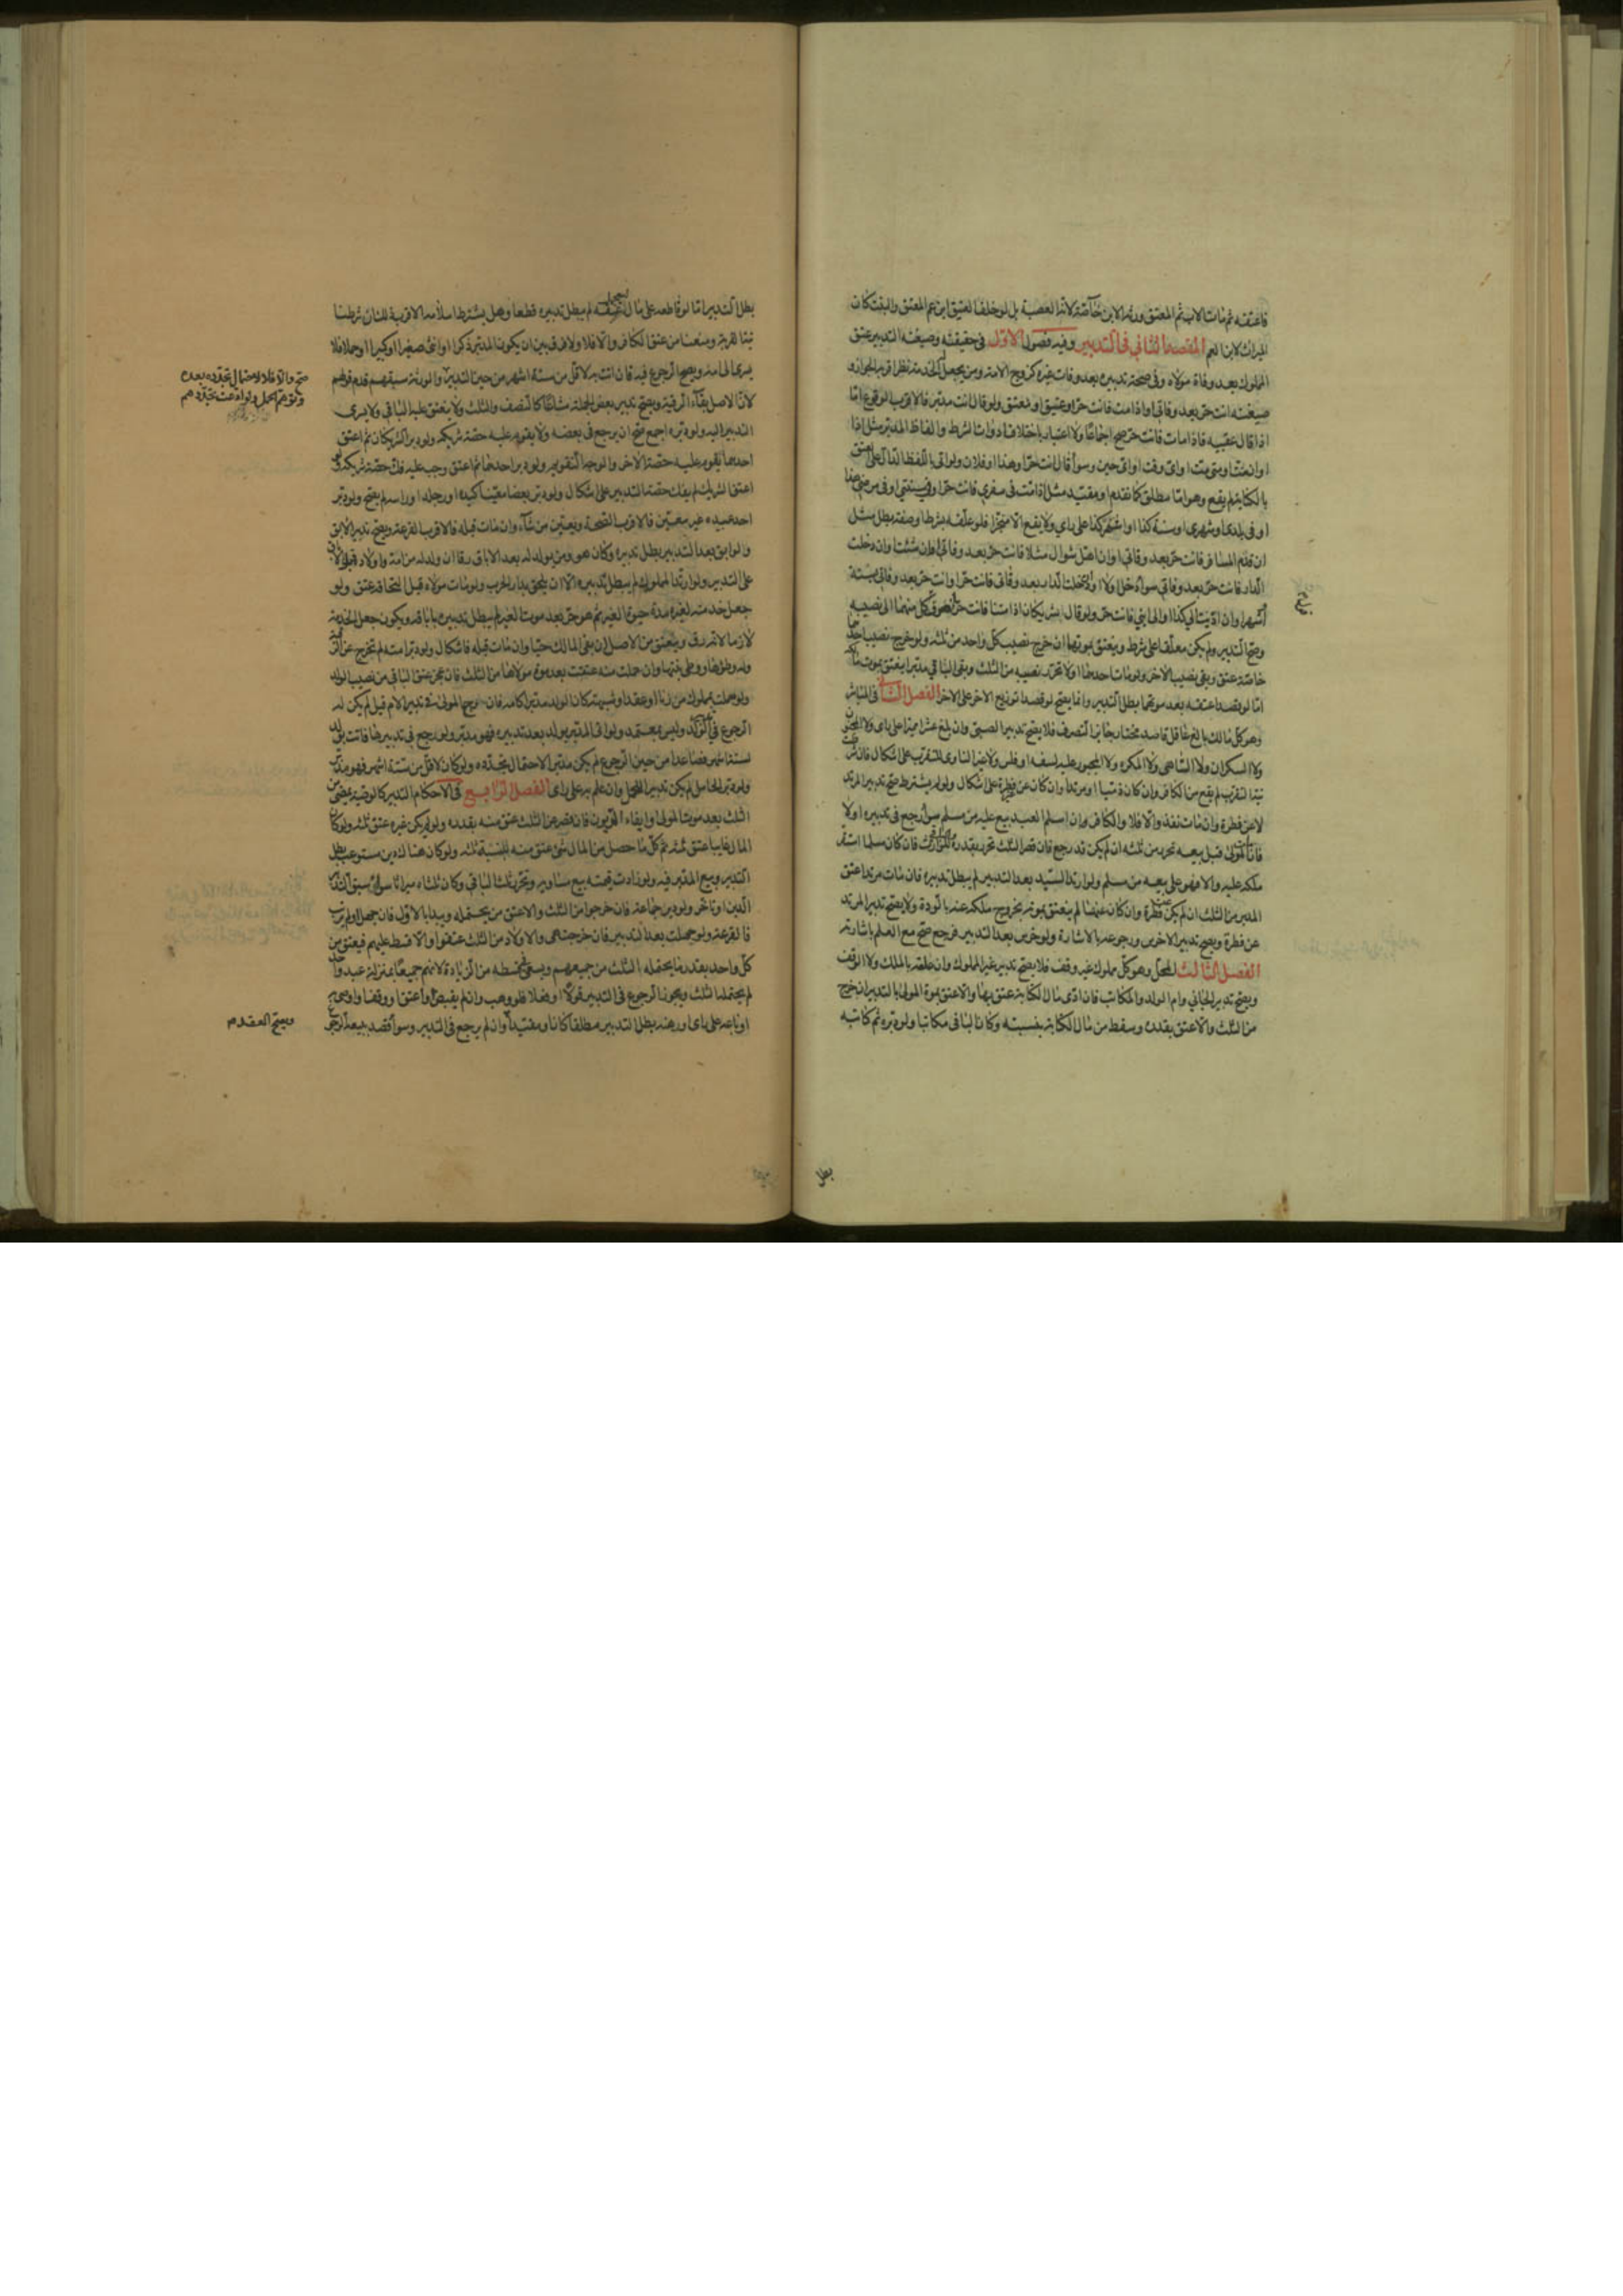 فاعتقه ثم مات الاب ثم المعتق ورثه الابن خاصة لانه العصبة بل لو خلف العتيق ابن عم المعتق والبنت كان
الميراث لابن العم المقصد الثاني في التدبير وفيه فصول الاول في حقيقته وصيغته التدبير عتق
المملوك بعد وفاة مولاه وفي صحة تدبيره بعد وفات غيره كزوج الامة ومن يجعل له الخدمة نظر اقربه الجواز و
صيغته انت حر بعد وفاتي او اذا مت فانت حر او عتيق او معتق ولو قال انت مدبر فالاقرب الوقوع اما
اذا قال عقيبه فاذا مت فانت حر صح اجماعا ولا اعتبار باختلاف ادوات الشرط والفاظ المدبر مثل اذا
او ان مت او متى مت او اي وقت او اي حين وسواء قال انت حر او هذا او فلان ولو اتى باللفظ الدال على العتق
بالكناية لم يقع وهو اما مطلق كما تقدم او مقيد مثل اذا مت في سفري فانت حر او في سنتي او في مرضي هذا
او في بلدي او شهري او سنة كذا او شهر كذا على راي ولا يقع الا منجزا فلو علقه بشرط او صفة بطل مثل
ان قدم المسافر فانت حر بعد وفاتي او ان اهل شوال مثلا فانت حر بعد وفاتي او ان شئت او ان دخلت
الدار فانت حر بعد وفاتي سواء دخل اولا او ان دخلت الدار بعد وفاتي فانت حر او انت حر بعد وفاتي بسنة
اشهر او ان اديت الي كذا او الى ابني فانت حر ولو قال شريكان اذا متنا فانت حر انصرف كل منهما الى نصيبه
وصح التدبير ولم يكن معلقا على شرط وينعتق بموتهما ان خرج نصيب كل واحد من ثلثه ولو خرج نصيب احدهما
خاصة عتق وبقي نصيب الاخر ولو مات احدهما اولا تحرر نصيبه من الثلث وبقي الباقي مدبرا ينعتق بموت مالكه
اما لو قصدا عتقه بعد موتهما بطل التدبير وانما يصح لو قصدا توزيع الاخر على الاخر الفصل الثاني في المباشر
وهو كل مالك بالغ عاقل قاصد مختار جائز التصرف فلا يصح تدبير الصبي وان بلغ عشرا مميزا على راي ولا المجنون
ولا السكران ولا الساهي ولا المكره ولا المحجور عليه لسفه او فلس ولا غير الناوي للتقرب على اشكال فان شرطت
نية التقرب لم يقع من الكافر وان كان ذميا او مرتدا وان كان عن فطرة على اشكال ولو لم يشترط صح تدبير المرتد
لا عن فطرة وان مات نفذ والا فلا والكافر وان اسلم العبد بيع عليه من مسلم سواء رجع في تدبيره اولا
فان مات المولى قبل بيعه تحرر من ثلثه ان لم يكن قد رجع فان قصر الثلث تحرر بقدره والباقي للوارث فان كان مسلما استقر
ملكه عليه والا فهو على بيعه من مسلم ولو ارتد السيد بعد التدبير لم يبطل تدبيره فان مات مرتدا عتق
المدبر من الثلث ان لم يكن عن فطرة وان كان عنها لم ينعتق بموته بخروج ملكه عنه بالردة ولا يصح تدبير المرتد
عن فطرة ويصح تدبير الاخرس ورجوعه بالاشارة ولو خرس بعد التدبير فرجع صح مع العلم باشارته
الفصل الثالث المحل وهو كل مملوك غير وقف فلا يصح تدبير غير المملوك وان علقه بالملك ولا الوقف
ويصح تدبير الجاني وام الولد والمكاتب فان ادى مال الكتابة عتق بها والا عتق بموت المولى بالتدبير ان خرج
من الثلث والا عتق بقدره وسقط من مال الكتابة بنسبته وكان الباقي مكاتبا ولو دبره ثم كاتبه
بطل
بطل التدبير اما لو قاطعه على مال ليعجل له لم يبطل تدبيره قطعا وهل يشترط اسلامه الاقرب ذلك ان شرطنا
نية القربة ومنعنا من عتق الكافر والا فلا ولا فرق بين ان يكون المدبر ذكرا او انثى صغيرا او كبيرا او حملا فلا
يسري الى امه ويصح الرجوع فيه فان اتت به لاقل من ستة اشهر من حين التدبير
صح والا فلا لاحتمال تجدده بعده
لان الاصل بقاء الرقية ويصح تدبير بعض الجملة مشاعا كالنصف والثلث ولا ينعتق عليه الباقي ولا يسري
التدبير اليه ولو دبره اجمع صح ان يرجع في بعضه ولا يقوم عليه حصة شريكه ولو دبر الشريكان ثم اعتق
احدهما يقوم عليه حصة الاخر والوجه التقويم ولو دبر احدهما ثم اعتق وجب عليه فك حصة شريكه ولو
اعتق الشريك لم يفك حصة التدبير على اشكال ولو دبر بعضا معينا كيده او رجله او راسه لم يصح ولو دبر
احد عبيده غير معين فالاقرب الصحة ويعين من شاء وان مات قبله فالاقرب القرعة ويصح تدبير الابق
ولو ابق بعد التدبير بطل تدبيره وكان هو ومن يولد له بعد الاباق رقا ان ولد له من امة واولاده قبل الاباق
على التدبير ولو ارتد المملوك لم يبطل تدبيره الا ان يلحق بدار الحرب ولو مات مولاه قبل التحاقه عتق ولو
جعل خدمته لغيره مدة حيوة الغير ثم هو حر بعد موت الغير لم يبطل تدبيره باباقه ويكون جعل الخدمة
ولو حملت بمملوك من زنا او عقد او شبهة كان الولد مدبرا كامه فان رجع المولى في تدبير الام قيل لم يكن له
الرجوع في الولد وليس بمعتمد ولو اتى المدبر بولد بعد تدبيره فهو مدبر ولو رجع في تدبيرها فاتت بولد
لستة اشهر فصاعدا من حين الرجوع لم يكن مدبرا لاحتمال تجدده ولو كان لاقل من ستة اشهر فهو مدبر
ولو دبر الحامل لم يكن تدبيرا للحمل وان علم به على راي الفصل الرابع في الاحكام التدبير كالوصية يمضي من
الثلث بعد موت المولى وايفاء الديون فان قصر عن الثلث عتق منه بقدره ولو لم يكن غيره عتق ثلثه ولو كان
المال غايبا عتق ثلثه ثم كل ما حصل من المال شيء عتق منه بنسبة ثلثه ولو كان هناك دين مستوعب بطل
التدبير وبيع المدبر فيه ولو زادت قيمته بيع مساويه وتحرر ثلث الباقي وكان ثلثاه ميراثا سواء سبق التدبير
الدين او تاخر ولو دبر جماعة فان خرجوا من الثلث والا عتق من يحتمله ويبدا بالاول فان جهل او لم يرتب
فالقرعة ولو حملت بعد التدبير فان خرجت هي والاولاد من الثلث عتقوا والا قسط عليهم فيعتق من
كل واحد بقدر ما يحتمله الثلث من جميعهم ويسعى في قسطه من الزيادة لانهم جميعا بمنزلة عبد واحد
لم يحتمله الثلث ويجوز الرجوع في التدبير قولا او فعلا فلو وهب وان لم يقبض او اعتق او وقف او اوصى به
او باعه على راي او رهنه بطل التدبير مطلقا كان او مقيدا وان لم يرجع في التدبير وسواء قصد ببيعه الرجوع
ويصح العقد